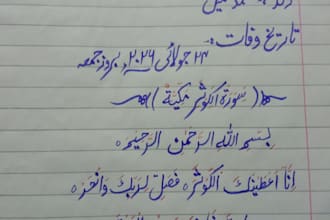 تاریخ وفات:-
۲۴ جولائی ۲۰۲۶ء بروز جمعہ
(سورۃ الکوثر مکیۃ)
بسم اللہ الرحمن الرحیم ○
إِنَّا أَعْطَيْنٰكَ الْكَوْثَرَ ○ فَصَلِّ لِرَبِّكَ وَانْحَرْ ○